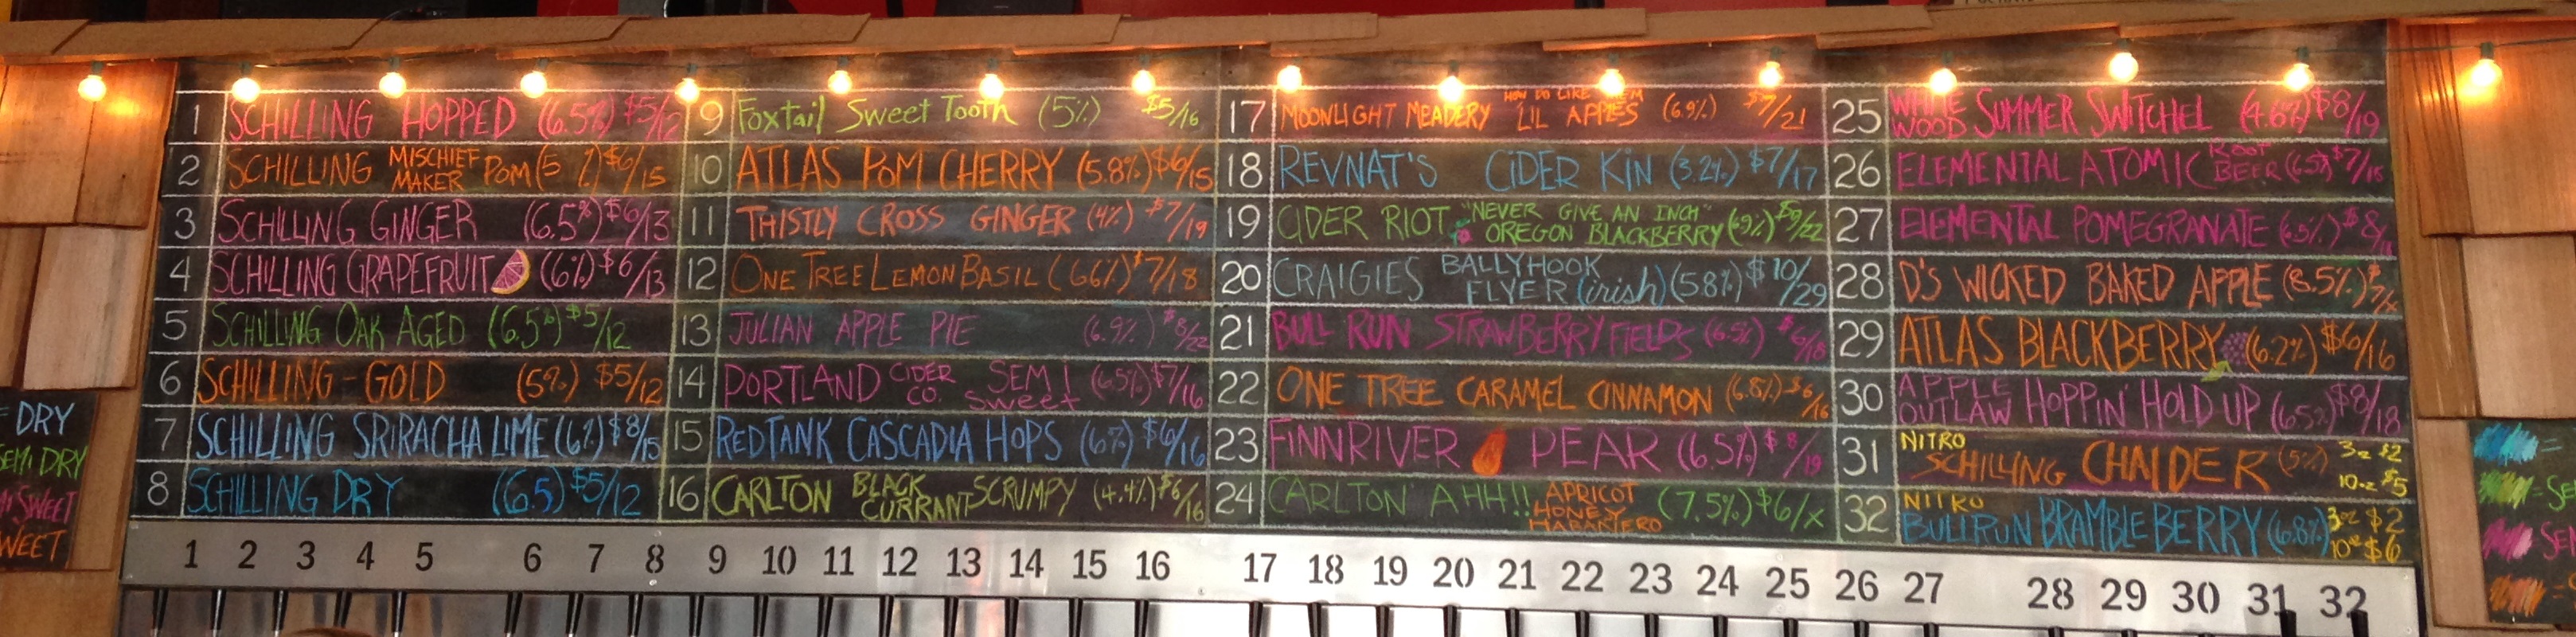 1 SCHILLING HOPPED (6.5%) $5/12
2 SCHILLING MISCHIEF MAKER POM (5 %) $6/15
3 SCHILLING GINGER (6.5%) $6/13
4 SCHILLING GRAPEFRUIT (6%) $6/13
5 SCHILLING OAK AGED (6.5%) $5/12
6 SCHILLING - GOLD (5%) $5/12
7 SCHILLING SRIRACHA LIME (6%) $8/15
8 SCHILLING DRY (6.5) $5/12
9 Foxtail Sweet Tooth (5%) $5/16
10 ATLAS POM CHERRY (5.8%) $6/15
11 THISTLY CROSS GINGER (4%) $7/19
12 ONE TREE LEMON BASIL (6.6%) $7/18
13 JULIAN APPLE PIE (6.9%) $8/22
14 PORTLAND CIDER CO. SEMI Sweet (6.5%) $7/16
15 REDTANK CASCADIA HOPS (6%) $6/16
16 CARLTON BLACK CURRANT SCRUMPY (4.4%) $6/16
17 MOONLIGHT MEADERY HOW DO LIKE THEM LIL APPLES (6.9%) $7/21
18 REVNAT'S CIDER KIN (3.2%) $7/17
19 CIDER RIOT "NEVER GIVE AN INCH" OREGON BLACKBERRY (6.9%) $9/22
20 CRAIGIES BALLYHOOK FLYER (irish) (5.8%) $10/29
21 BULL RUN STRAWBERRY FIELDS (6.5%) $6/18
22 ONE TREE CARAMEL CINNAMON (6.8%) $6/16
23 FINNRIVER PEAR (6.5%) $8/19
24 CARLTON AHH!! APRICOT HONEY HABANERO (7.5%) $6/X
25 WHITE WOOD SUMMER SWITCHEL (4.6%) $8/19
26 ELEMENTAL ATOMIC ROOT BEER (6.5%) $7/15
27 ELEMENTAL POMEGRANATE (6.5%) $8/
28 D'S WICKED BAKED APPLE (8.5%) $7/X
29 ATLAS BLACKBERRY (6.2%) $6/16
30 APPLE OUTLAW HOPPIN' HOLD UP (6.5%) $8/18
31 NITRO SCHILLING CHAIDER (5%) 3oz $2 10oz $5
32 NITRO BULLRUN BRAMBLE BERRY (6.8%) 3oz $2 10oz $6
= DRY
SEMI DRY
SWEET
WEET
=
= SE
SE
1 2 3 4 5 6 7 8 9 10 11 12 13 14 15 16 17 18 19 20 21 22 23 24 25 26 27 28 29 30 31 32